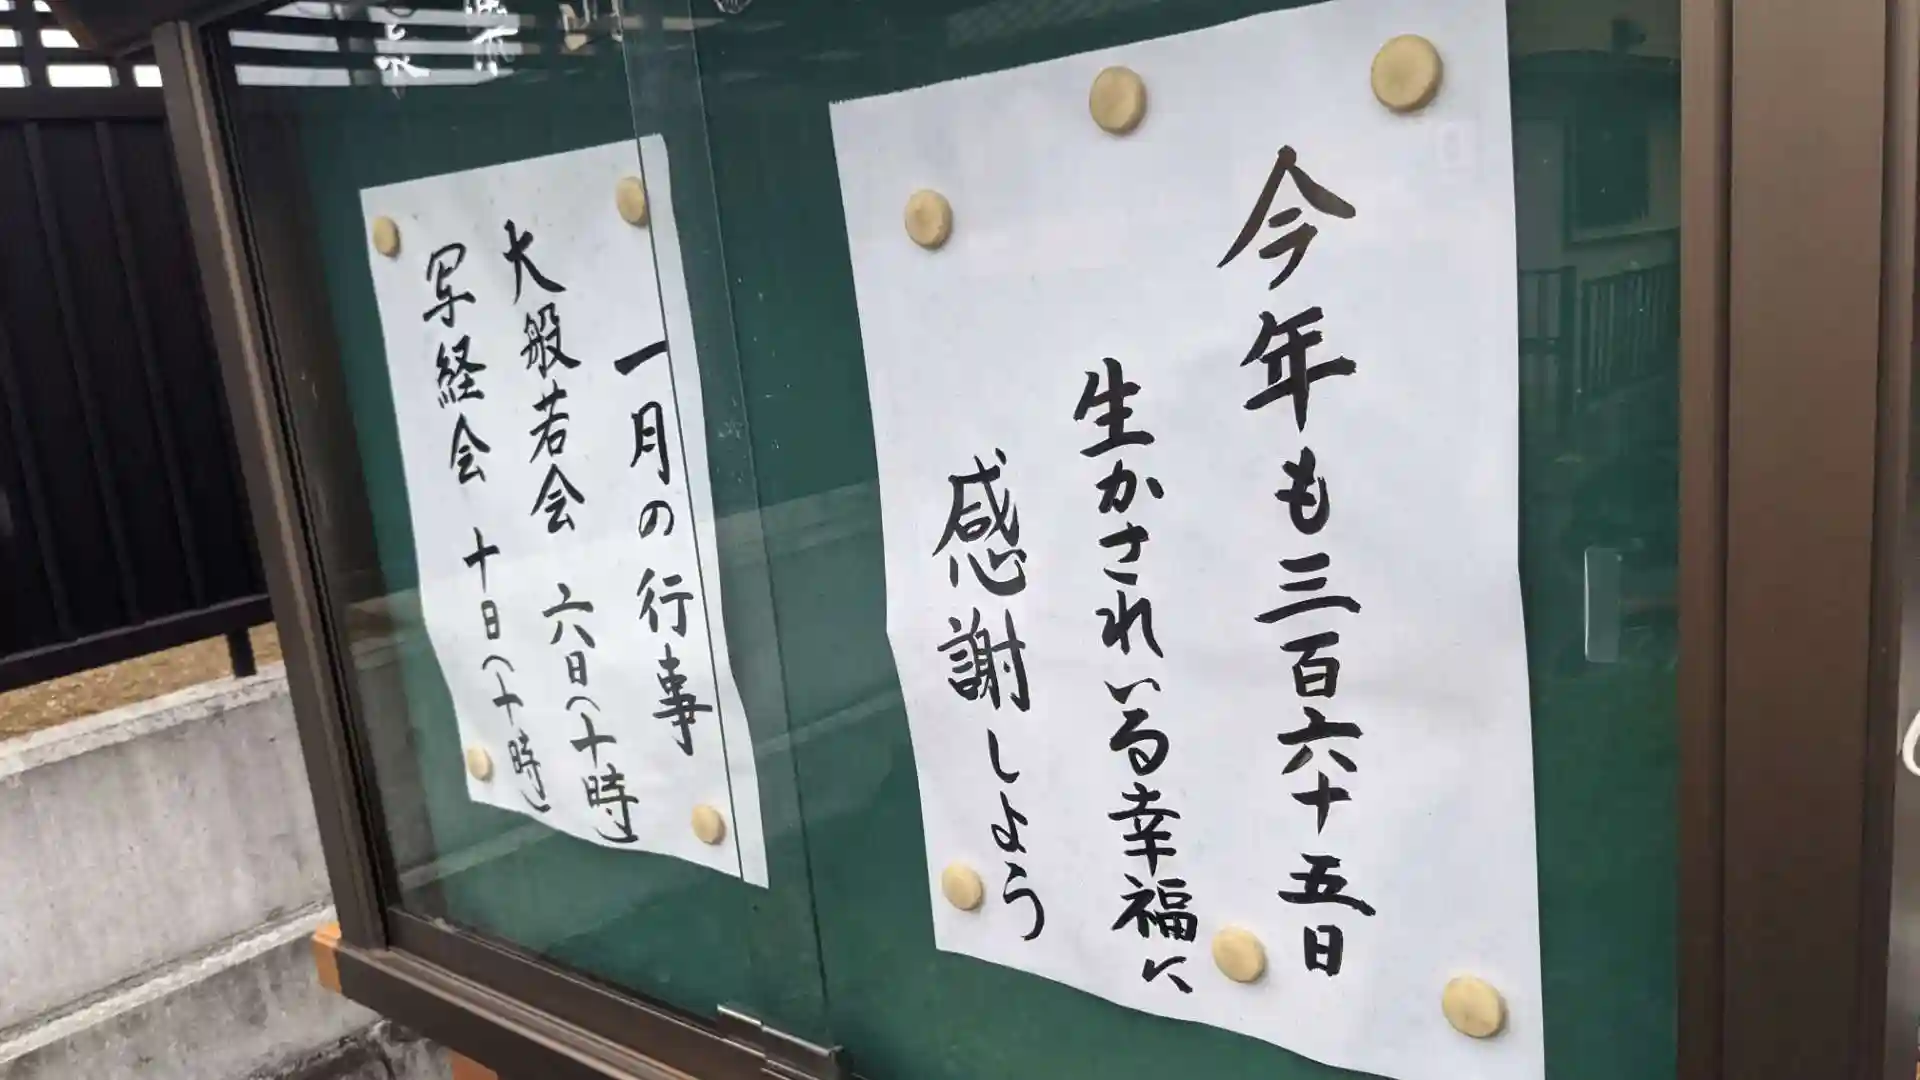 今年も三百六十五日
生かされいる幸福に
感謝しよう
一月の行事
大般若会 六日(十時)
写経会 十日(十時)